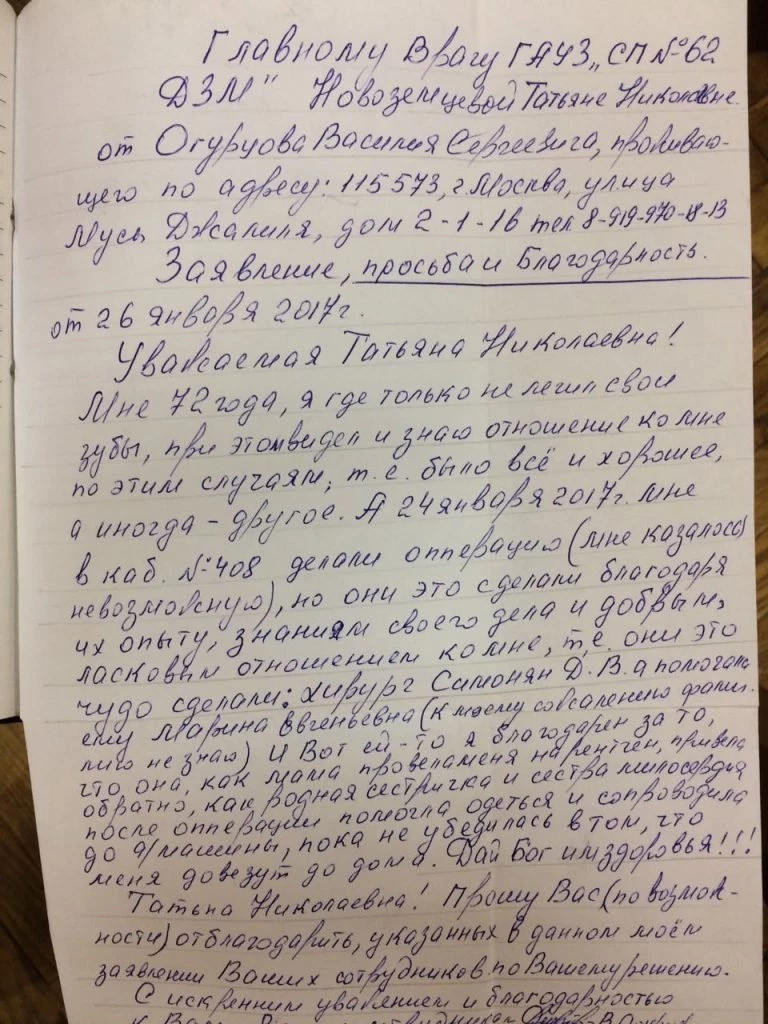 Главному Врачу ГАУЗ „СП №62
ДЗМ" Новоземцевой Татьяне Николаевне.
от Огурцова Василия Сергеевича, проживаю-
щего по адресу: 115573, г. Москва, улица
Мусы Джалиля, дом 2-1-16 тел 8-919-970-18-13
Заявление, просьба и Благодарность.
от 26 января 2017г.
Уважаемая Татьяна Николаевна!
Мне 72 года, я где только не лечил свои
зубы, при этом видел и знаю отношение ко мне
по этим случаям, т.е. было всё и хорошее,
а иногда - другое. А 24 января 2017г. мне
в каб. №408 делали опперацию (мне казалось
невозможную), но они это сделали благодаря
их опыту, знаниям своего дела и добрым,
ласковым отношением ко мне, т.е. они это
чудо сделали: хирург Симонян Д.В. а помогала
ему Марина Евгеньевна (к моему сожалению фами-
лию не знаю) И Вот ей-то я благодарен за то,
что она, как мама провела меня на рентген, привела
обратно, как родная сестричка и сестра милосердия
после опперации помогла одеться и сопроводила
до а/машины, пока не убедилась в том, что
меня довезут до дома. Дай Бог им здоровья!!!
Татьна Николаевна! Прошу Вас (по возмож-
ности) отблагодарить, указанных в данном моём
заявлении Ваших сотрудников по Вашему решению.
С искренним уважением и благодарностью
к Вам сотрудникам